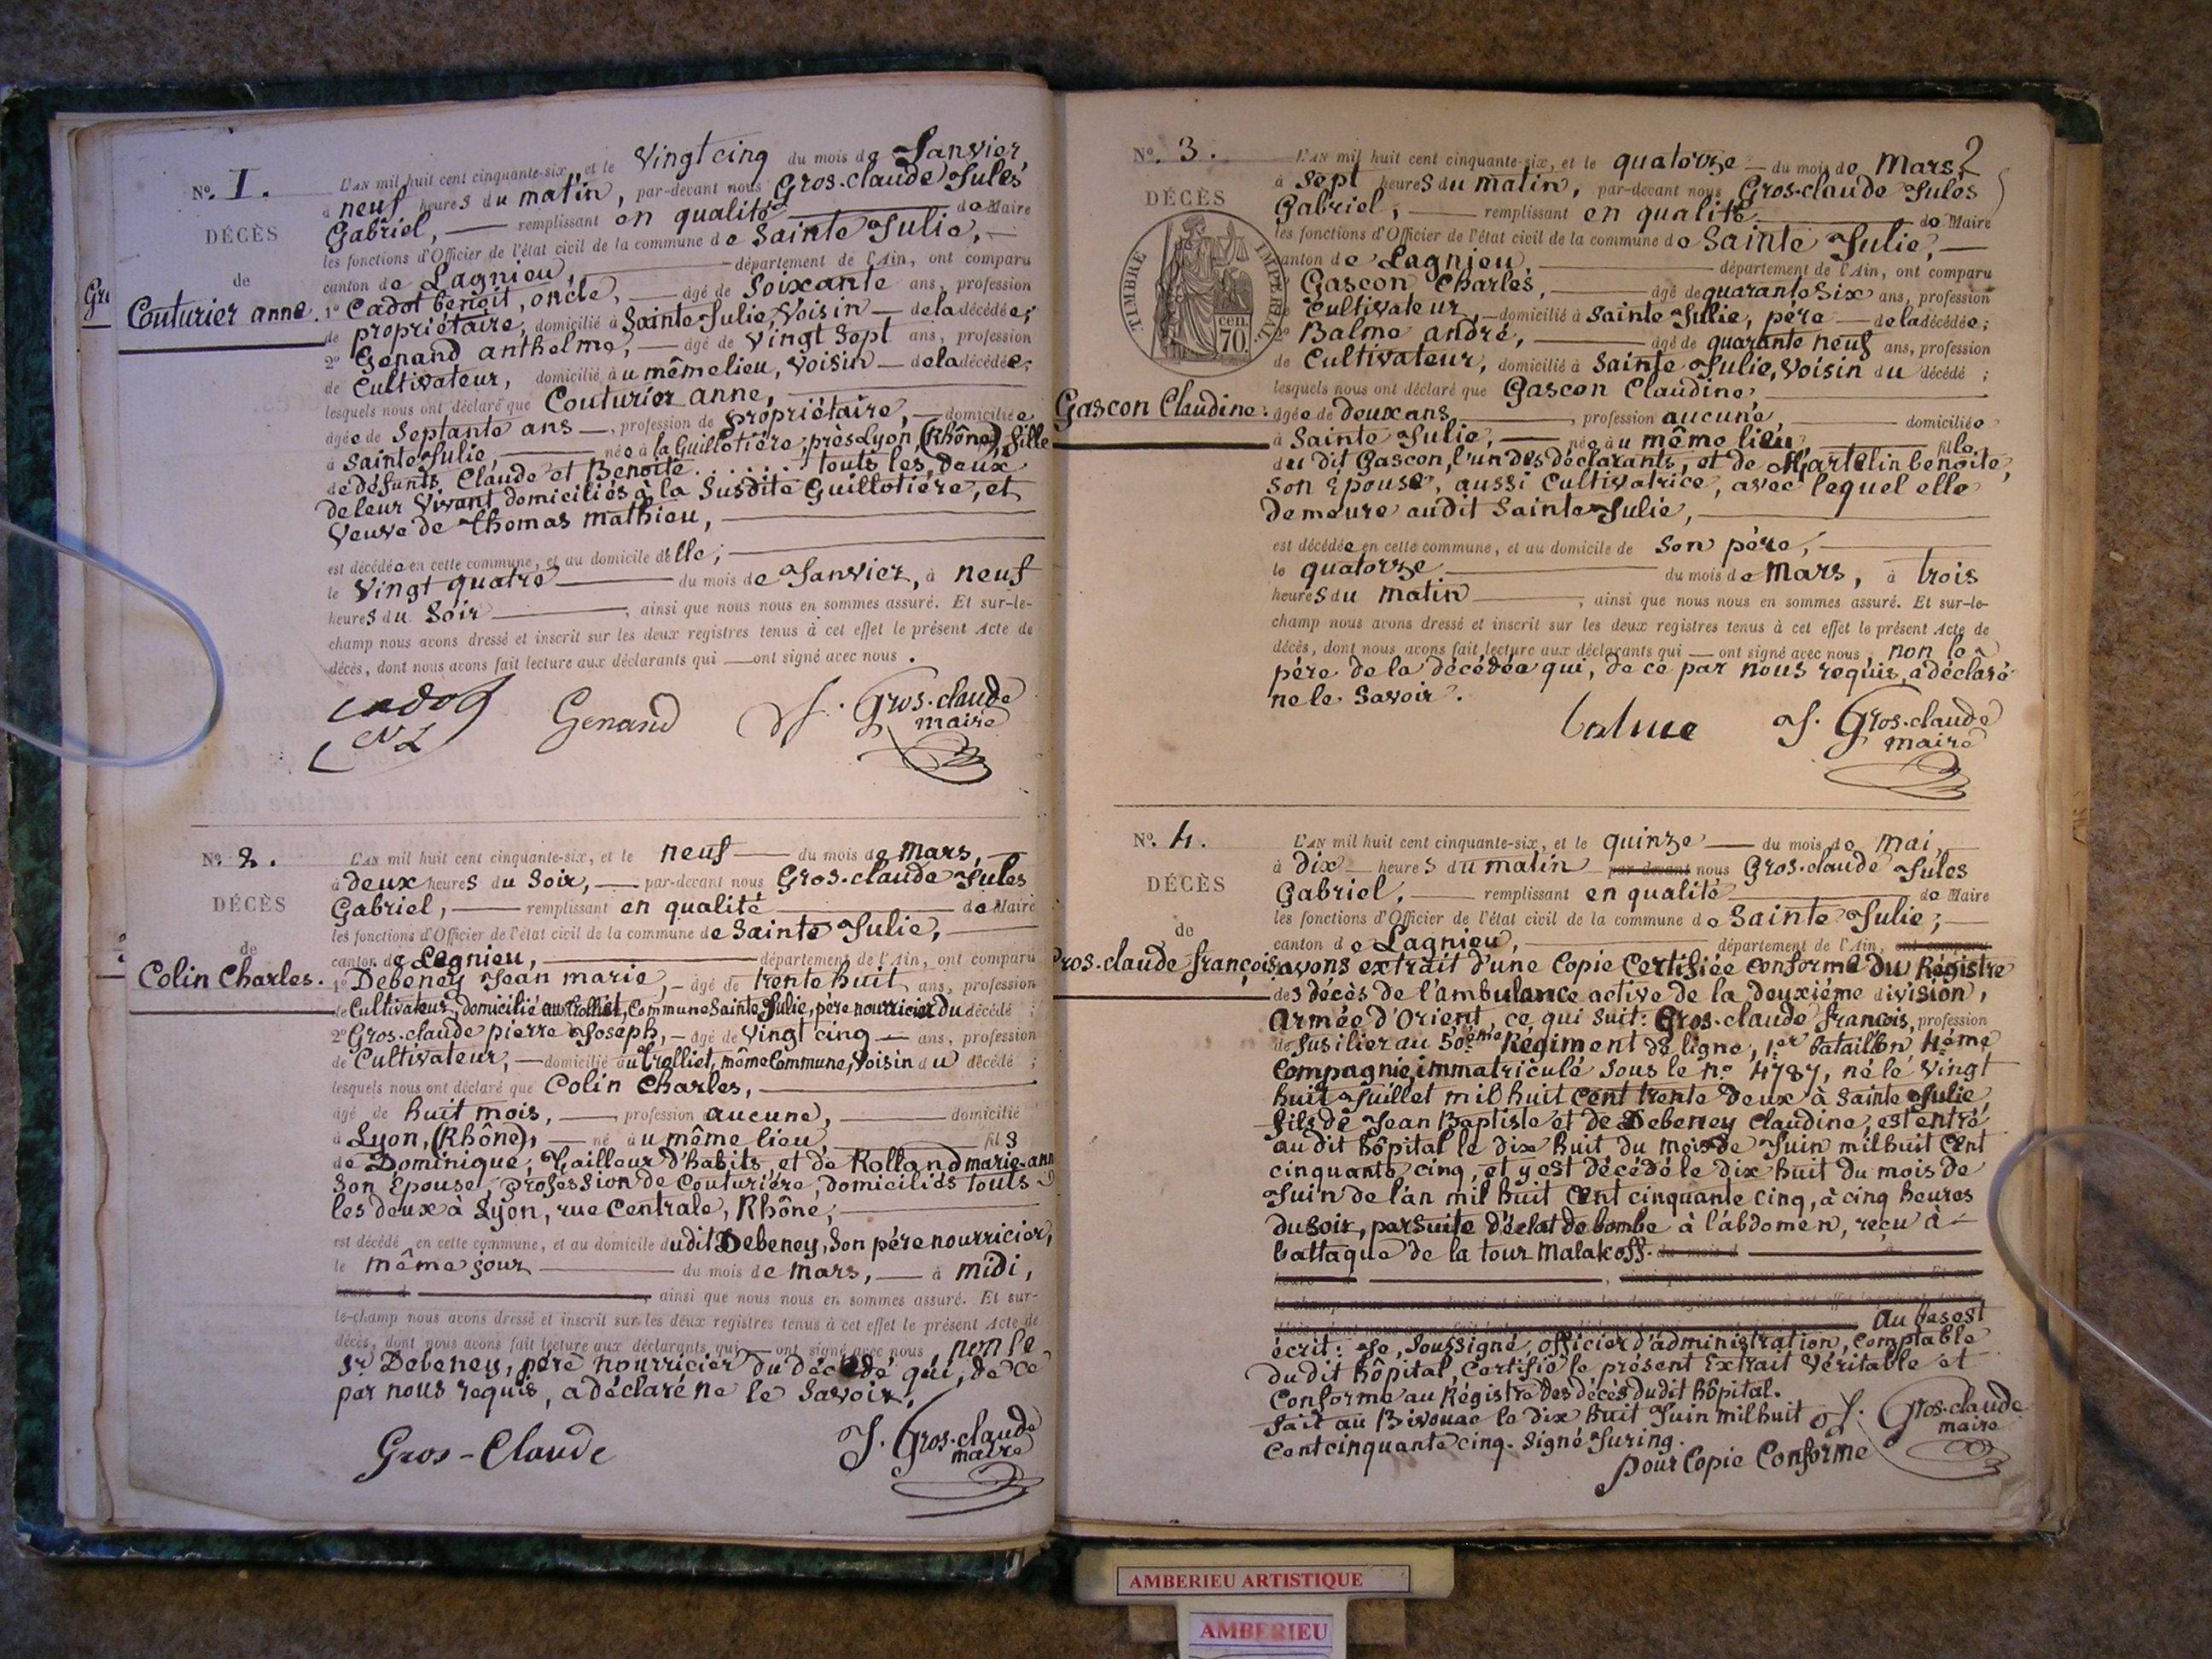 N.º 1.
DÉCÈS
de
Couturier anne.
Gr
L'AN mil huit cent cinquante-six, et le Vingt cinq du mois de Janvier,
à neuf heures du matin, par-devant nous Gros-claude Jules
Gabriel, remplissant en qualité de Maire
les fonctions d'Officier de l'état civil de la commune de Sainte Julie,
canton de Lagnieu, département de l'Ain, ont comparu
1º Cadot benoit, oncle, âgé de Soixante ans, profession
de propriétaire, domicilié à Sainte Julie, Voisin de la décédée;
2º Genand anthelme, âgé de Vingt Sept ans, profession
de Cultivateur, domicilié au même lieu, Voisin de la décédée;
lesquels nous ont déclaré que Couturier anne,
âgée de Septante ans, profession de propriétaire, domiciliée
à Sainte Julie, née à la Guillotière, près Lyon, (Rhône), fille
de défunts Claude et Benoite ...... touts les deux
de leur Vivant domiciliés à la Susdite Guillotière, et
Veuve de Thomas mathieu,
est décédée en cette commune, et au domicile d'elle;
le Vingt quatre du mois de Janvier, à neuf
heures du Soir, ainsi que nous nous en sommes assuré. Et sur-le-
champ nous avons dressé et inscrit sur les deux registres tenus à cet effet le présent Acte de
décès, dont nous avons fait lecture aux déclarants qui ont signé avec nous.
cadot Genand J. Gros-claude
maire
N.º 2.
DÉCÈS
de
Colin Charles.
L'AN mil huit cent cinquante-six, et le neuf du mois de Mars,
à deux heures du Soir, par-devant nous Gros-claude Jules
Gabriel, remplissant en qualité de Maire
les fonctions d'Officier de l'état civil de la commune de Sainte Julie,
canton de Lagnieu, département de l'Ain, ont comparu
1º Debeney Jean marie, âgé de trente huit ans, profession
de Cultivateur, domicilié au trolliet, Commune Sainte Julie, père nourricier du décédé;
2º Gros-claude pierre Joseph, âgé de Vingt cinq ans, profession
de Cultivateur, domicilié au trolliet, même Commune, Voisin du décédé;
lesquels nous ont déclaré que Colin Charles,
âgé de huit mois, profession aucune, domicilié
à Lyon, (Rhône), né au même lieu, fils
de Dominique, Tailleur d'habits, et de Rolland marie-ann
Son Epouse, profession de Couturière, domiciliés touts
les deux à Lyon, rue Centrale, Rhône,
est décédé en cette commune, et au domicile dudit Debeney, Son père nourricier,
le même jour du mois de Mars, à midi,
heure d , ainsi que nous nous en sommes assuré. Et sur-
le-champ nous avons dressé et inscrit sur les deux registres tenus à cet effet le présent Acte de
décès, dont nous avons fait lecture aux déclarants qui ont signé avec nous, non le
Sr Debeney, père nourricier du décédé qui, de ce
par nous requis, a déclaré ne le Savoir.
Gros-Claude J. Gros-claude
maire
2
N.º 3.
DÉCÈS
TIMBRE IMPÉRIAL
70 cen.
Gascon Claudine.
L'AN mil huit cent cinquante-six, et le quatorze du mois de Mars,
à Sept heures du matin, par-devant nous Gros-claude Jules
Gabriel, remplissant en qualité de Maire
les fonctions d'Officier de l'état civil de la commune de Sainte Julie,
canton de Lagnieu, département de l'Ain, ont comparu
Gascon Charles, âgé de quarante Six ans, profession
Cultivateur, domicilié à Sainte Julie, père de la décédée;
2º Balme andré, âgé de quarante neuf ans, profession
de Cultivateur, domicilié à Sainte Julie, Voisin du décédé;
lesquels nous ont déclaré que Gascon Claudine,
âgée de deux ans, profession aucune, domiciliée
à Sainte Julie, née au même lieu, fille
du dit Gascon, l'un des déclarants, et de Martelin benoite,
Son Epouse, aussi Cultivatrice, avec lequel elle
demeure audit Sainte Julie,
est décédée en cette commune, et au domicile de Son père,
le quatorze du mois de Mars, à trois
heures du Matin, ainsi que nous nous en sommes assuré. Et sur-le-
champ nous avons dressé et inscrit sur les deux registres tenus à cet effet le présent Acte de
décès, dont nous avons fait lecture aux déclarants qui ont signé avec nous, non le
père de la décédée qui, de ce par nous requis, a déclaré
ne le Savoir.
balme J. Gros-claude
maire
N.º 4.
DÉCÈS
de
Gros-claude françois
L'AN mil huit cent cinquante-six, et le quinze du mois de Mai,
à dix heures du matin par-devant nous Gros-claude Jules
Gabriel, remplissant en qualité de Maire
les fonctions d'Officier de l'état civil de la commune de Sainte Julie;
canton de Lagnieu, département de l'Ain, ont comparu
avons extrait d'une Copie Certifiée conforme du Régistre
des décès de l'ambulance active de la deuxième division,
Armée d'Orient, ce qui suit: Gros-claude françois, profession
de fusilier au 50ème Régiment de ligne, 1er bataillon 4ème
Compagnie, immatriculé sous le nº 4787, né le Vingt
huit Juillet mil huit cent trente deux à Sainte Julie,
fils de Jean Baptiste et de Debeney Claudine, est entré
au dit hôpital le dix huit du mois de Juin mil huit Cent
cinquante cinq, et y est décédé le dix huit du mois de
Juin de l'an mil huit Cent cinquante cinq, à cinq heures
du soir, par suite d'éclat de bombe à l'abdomen, reçu à
l'attaque de la tour Malakoff. du mois d
heure d , ainsi que nous nous en sommes assuré. Et sur-
le-champ nous avons dressé et inscrit sur les deux registres tenus à cet effet le présent Acte de
décès, dont nous avons fait lecture aux déclarants Au bas est
écrit: Je, Soussigné, officier d'administration, Comptable
du dit hôpital, Certifie le présent Extrait Véritable et
Conforme au Régistre des décès du dit hôpital.
fait au Bivouac le dix huit Juin mil huit
Cent cinquante cinq. Signé Juring.
pour Copie Conforme
J. Gros-claude
maire
AMBERIEU ARTISTIQUE
AMBERIEU